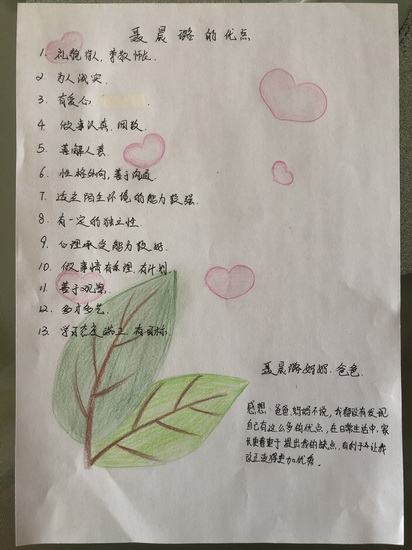 聂晨璐的优点
1. 礼貌待人,尊敬师长.
2. 为人诚实.
3. 有爱心
4. 做事认真,细致.
5. 善解人意.
6. 性格外向,善于沟通.
7. 适应陌生环境的能力较强.
8. 有一定的独立性.
9. 心理承受能力较好.
10. 做事情有条理.有计划.
11. 善于观察.
12. 多才多艺.
13. 学习态度端正.有目标.
聂晨璐妈妈.爸爸.
感想:爸爸,妈妈不说,我都没有发现
自己有这么多的优点,在日常生活中,家
长更着重于提出我的缺点,有利于让我
改正变得更加优秀.